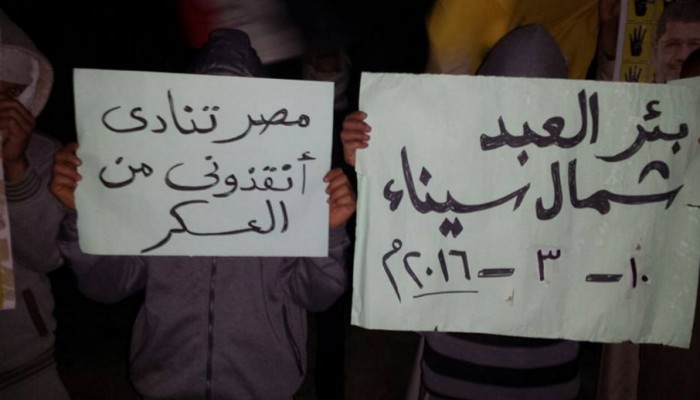 بئر العبد
شمال سيناء
١٠ - ٣ - ٢٠١٦م
مصر تنادى
أنقذونى من
العسكر